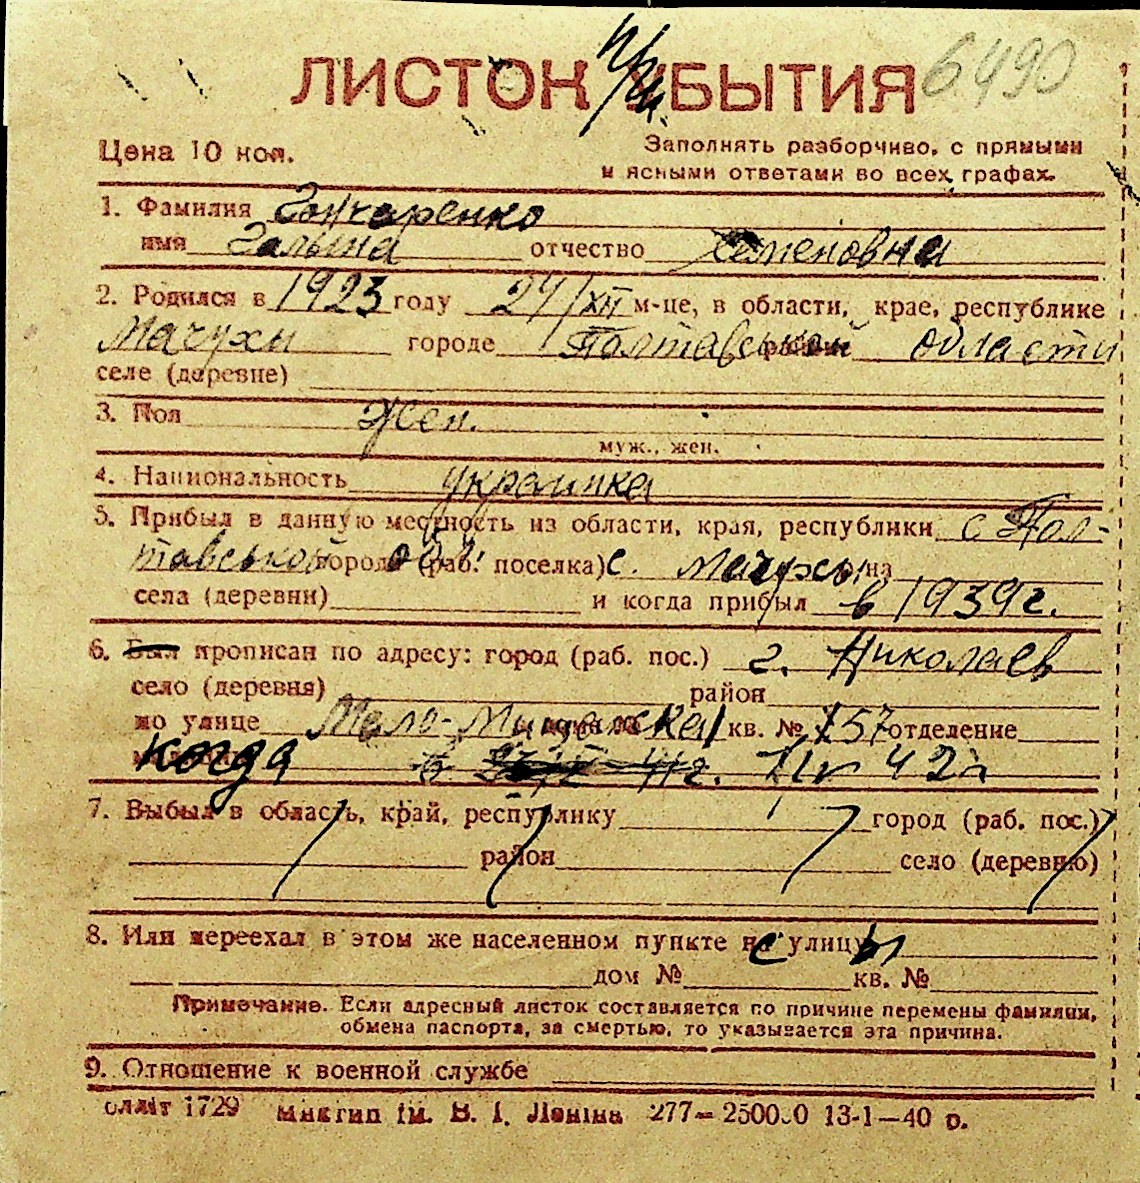 ЛИСТОК УБЫТИЯ 6490
Цена 10 коп.
Заполнять разборчиво, с прямыми
и ясными ответами во всех графах.
1. Фамилия Гончаренко
имя Галина отчество Семеновна
2. Родился в 1923 году 24/XII м-це, в области, крае, республике
Мачухи городе Полтавськой области
селе (деревне)
3. Пол Жен.
муж., жен.
4. Национальность украинка
5. Прибыл в данную местность из области, края, республики с Пол-
тавськой города обл. (раб. поселка) с. Мачухи
села (деревни) и когда прибыл в 1939 г.
6. Был прописан по адресу: город (раб. пос.) г. Николаев
село (деревня) район
по улице Мало- кв. № 157 отделение
когда 42
7. Выбыл в область, край, республику город (раб. пос.)
район село (деревню)
8. Или переехал в этом же населенном пункте с улицы
дом № кв. №
Примечание. Если адресный листок составляется по причине перемены фамилии,
обмена паспорта, за смертью, то указывается эта причина.
9. Отношение к военной службе
оллiт 1729 Миктип iм. В. I. Ленiна 277— 250000 13-1—40 р.